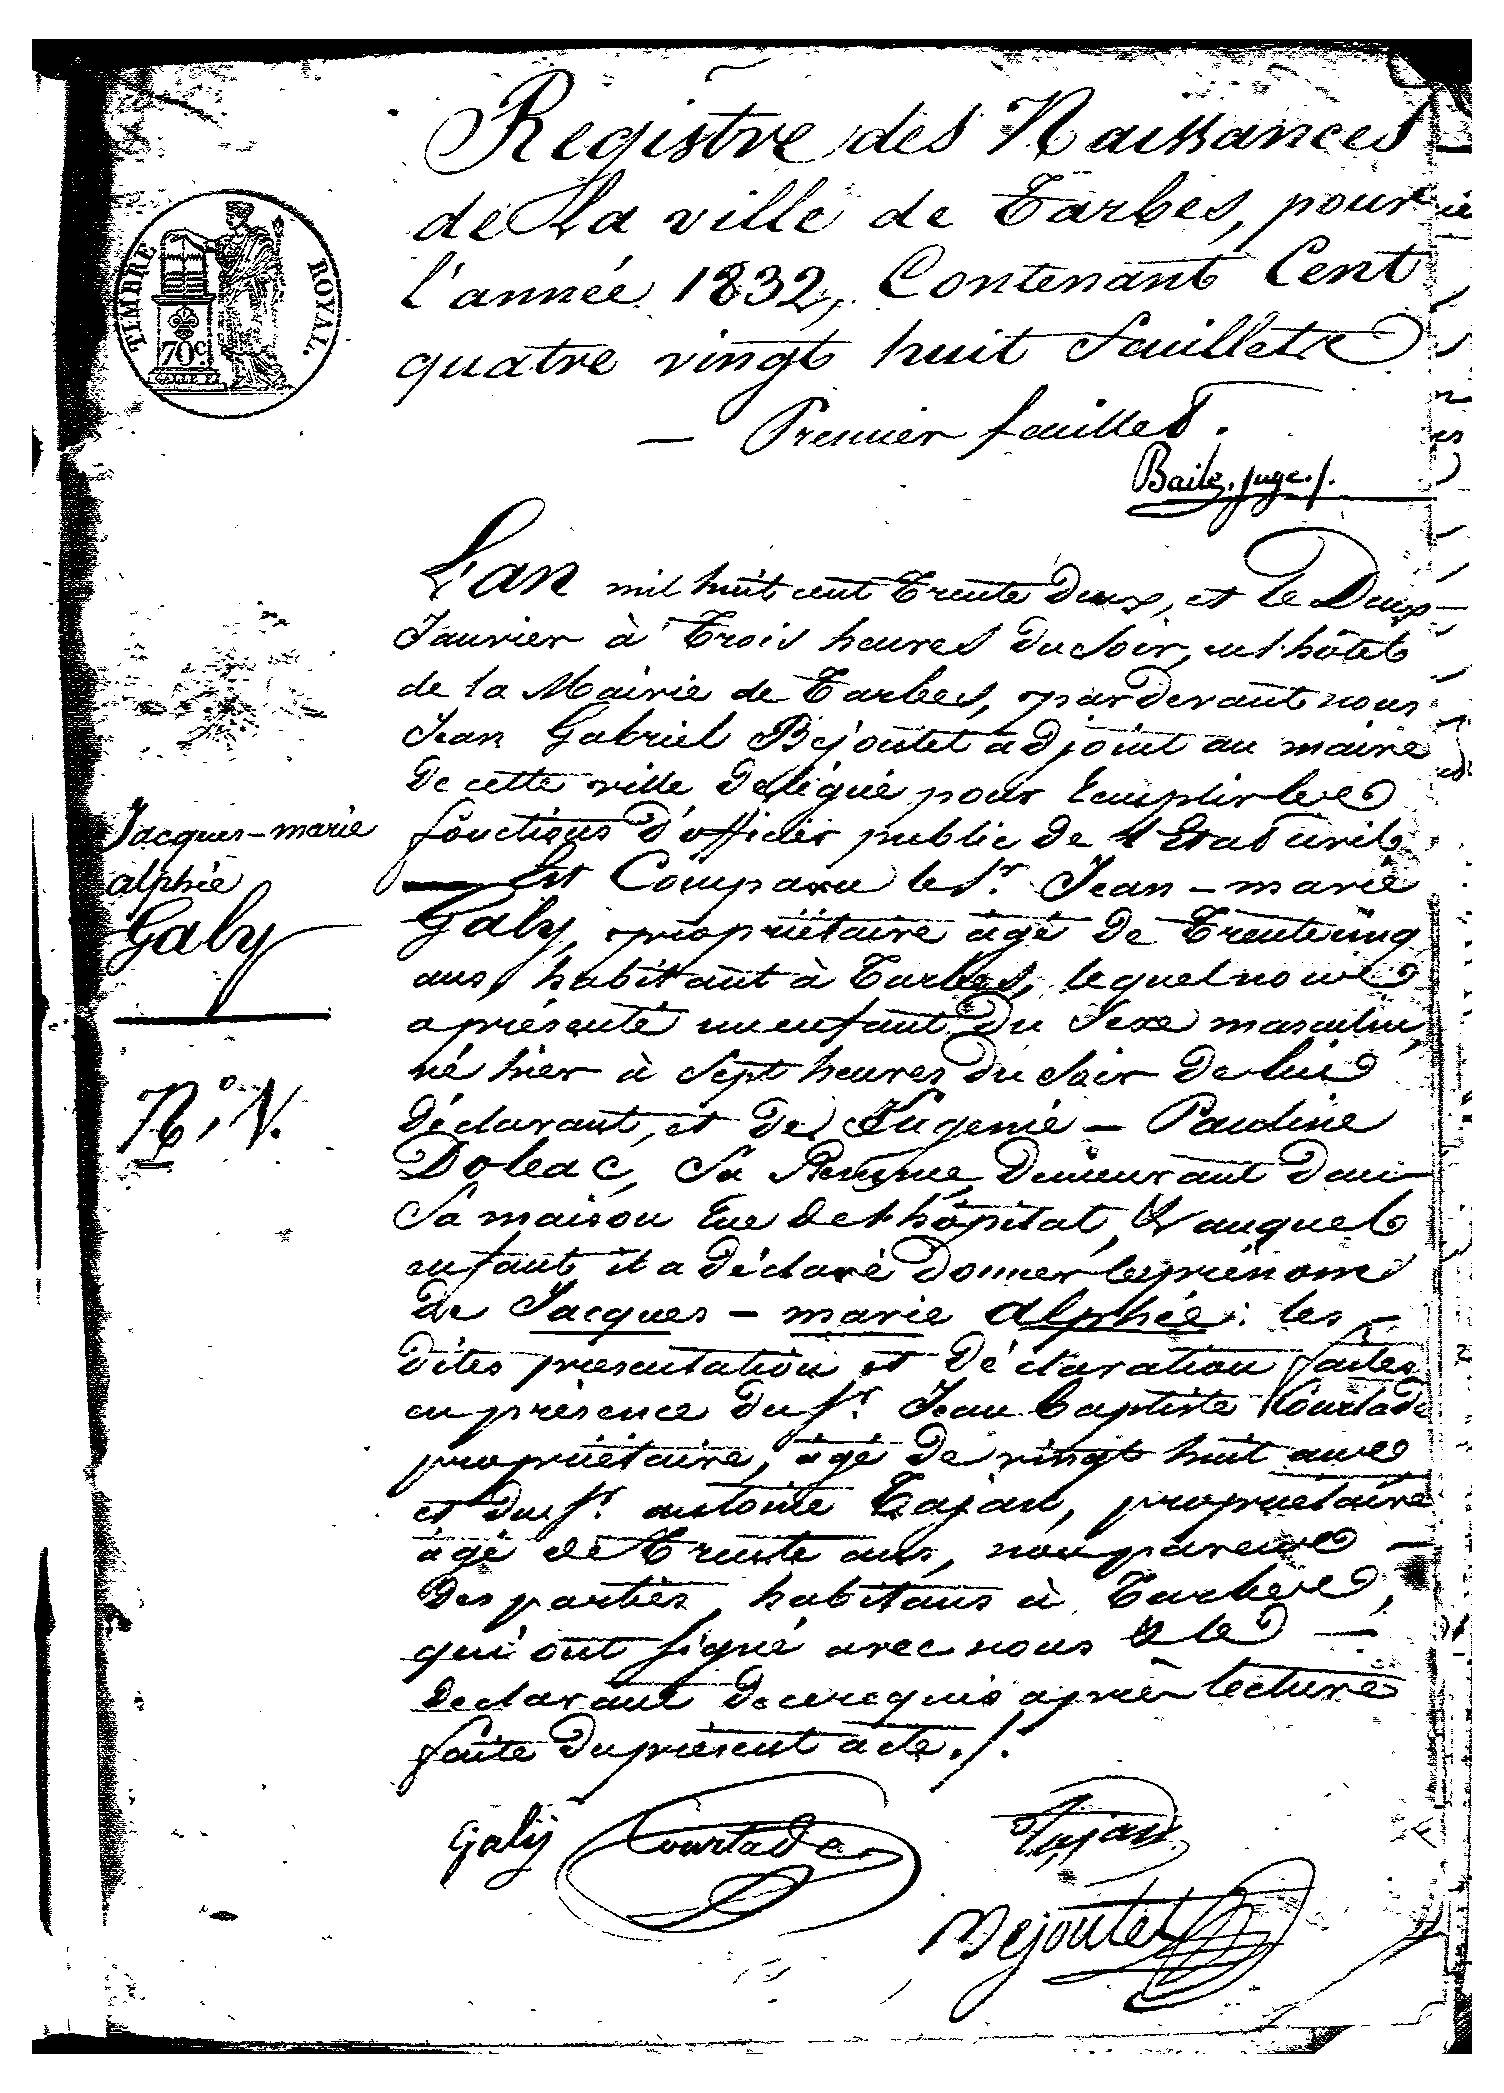 Registre des Naissances
de La ville de Tarbes, pour
l'année 1832, Contenant Cent
quatre vingt huit feuillets
— Premier feuillet.
Baile, juge./.
TIMBRE ROYAL.
70c.
L'an mil huit cent trente deux, et le Deux
Janvier à trois heures du soir, en l'hôtel
de la Mairie de Tarbes, pardevant nous
Jean Gabriel Béjoutet adjoint au maire
de cette ville délégué pour remplir les
fonctions d'officier public de l'Etat civil
— Est Comparu le Sr. Jean-marie
Galy, propriétaire âgé de trente cinq
ans, habitant à Tarbes, lequel nous
a présenté un enfant du sexe masculin,
né hier à sept heures du soir de lui
déclarant, et de Eugenie – Pauline
Doleac, sa femme, demeurant dans
sa maison rue de l'hôpital, & auquel
enfant il a déclaré donner les prénoms
de Jacques – marie alphée : les
dites présentation et déclaration faites
en présence du Sr. Jean Baptiste Courtade
propriétaire, âgé de vingt huit ans
et du Sr. antoine Tajan, propriétaire
âgé de trente ans, non parens —
des parties, habitans à Tarbes,
qui ont signé avec nous & le —
déclarant de ce requis après lecture
faite du présent acte./.
Jacques-marie
alphée
Galy
N.° 1.
Galy Courtade Tajan
Bejoutet